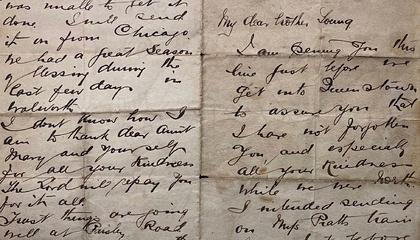 was unable to get it
done. I will send
it on from Chicago
we had a great Season
of blessing during the
last few days in
Walworth
I don't know how I
am to thank dear Aunt
Mary and yourself
for all your Kindness
The Lord will repay you
for it all.
Trust things are going
well at Paisley Road
My dear brother Young
I am penning you this
line just before we
get into Queenstown
to assure you that
I have not forgotten
you and especially
all your Kindness
while we were North
I intended sending
on Miss Pratts train